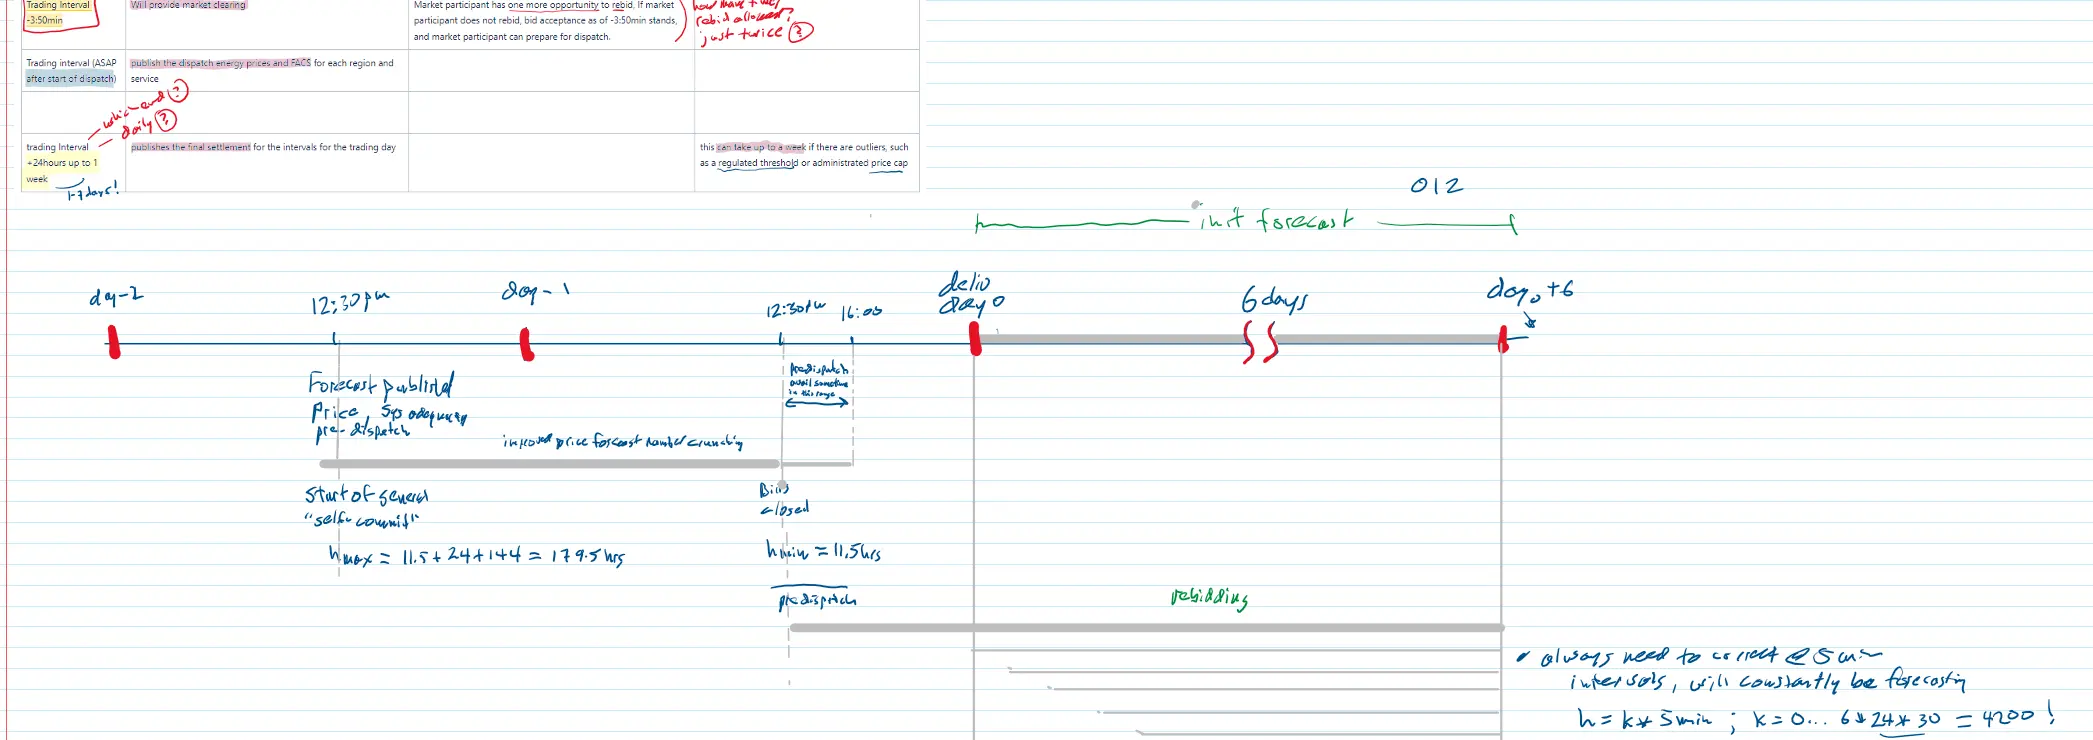 Trading Interval
-3:50min
Will provide market clearing
Market participant has one more opportunity to rebid, If market
participant does not rebid, bid acceptance as of -3:50min stands,
and market participant can prepare for dispatch.
how many times
rebid allowed?
just twice ?
Trading interval (ASAP
after start of dispatch)
publish the dispatch energy prices and FACS for each region and
service
which end ?
daily ?
trading Interval
+24hours up to 1
week
1-7 days!
publishes the final settlement for the intervals for the trading day
this can take up to a week if there are outliers, such
as a regulated threshold or administrated price cap
012
init forecast
day-2
12:30pm
day-1
12:30pm
16:00
deliv
day 0
6 days
day0+6
Forecast published
Price, Sys adequacy
pre-dispatch
predispatch
avail sometime
in this range
improved price forecast number crunching
Start of general
"self-commit"
Bids
closed
hmax = 11.5 + 24 + 144 = 179.5 hrs
hmin = 11.5hrs
predispatch
rebidding
• always need to correct @ 5 min
intervals, will constantly be forecasting
h = k * 5min ; k = 0... 6 * 24 * 30 = 4200 !